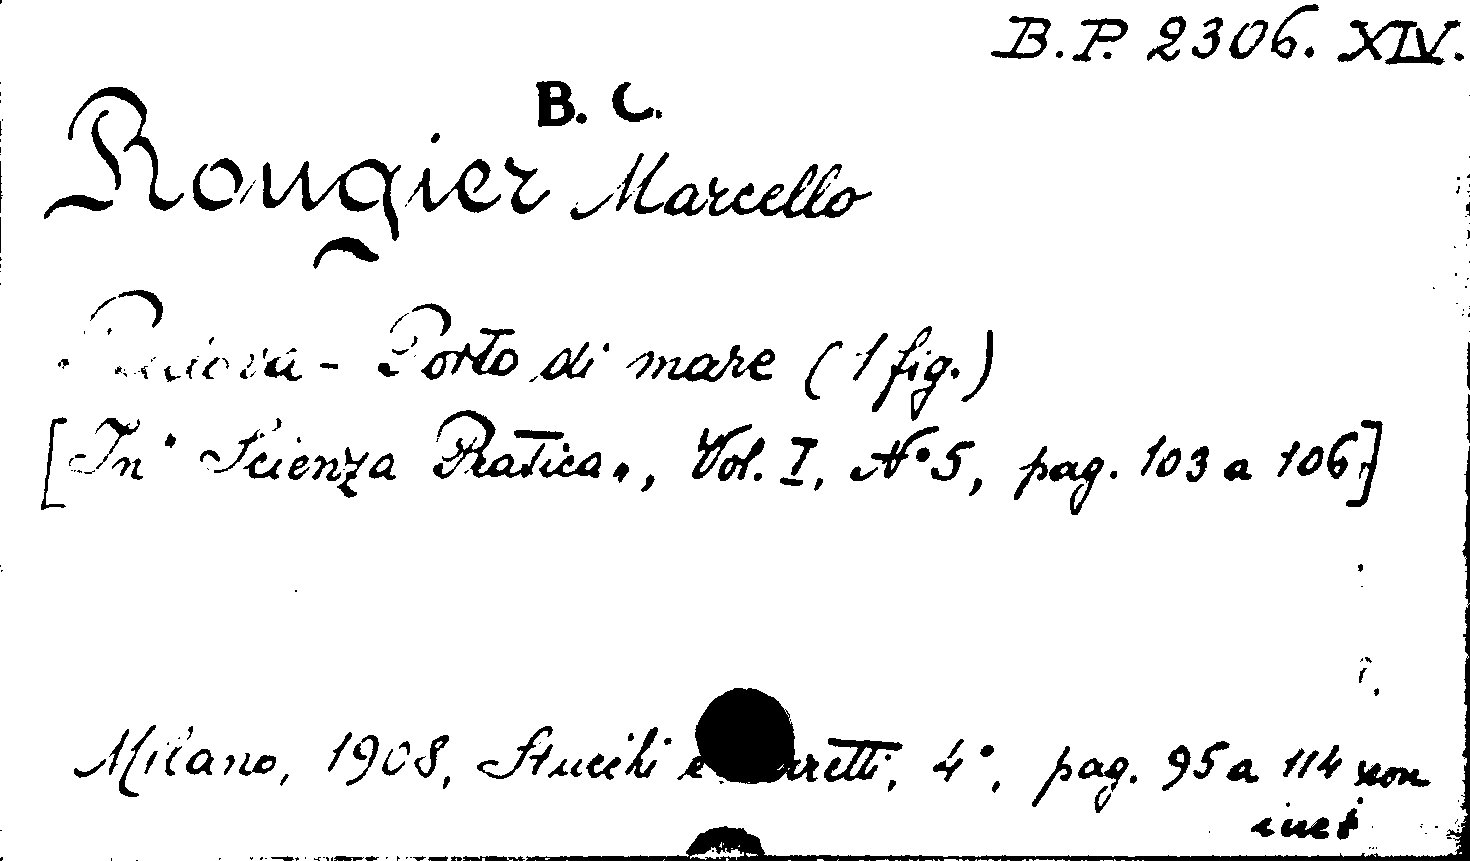 B.P. 2306. XIV.
B. C.
Rougier Marcello
Padova - Porto di mare (1 fig.)
[In "Scienza Pratica", Vol. I, N° 5, pag. 103 a 106]
Milano, 1908, Stucchi e rretti, 4°, pag. 95 a 114 con
inct